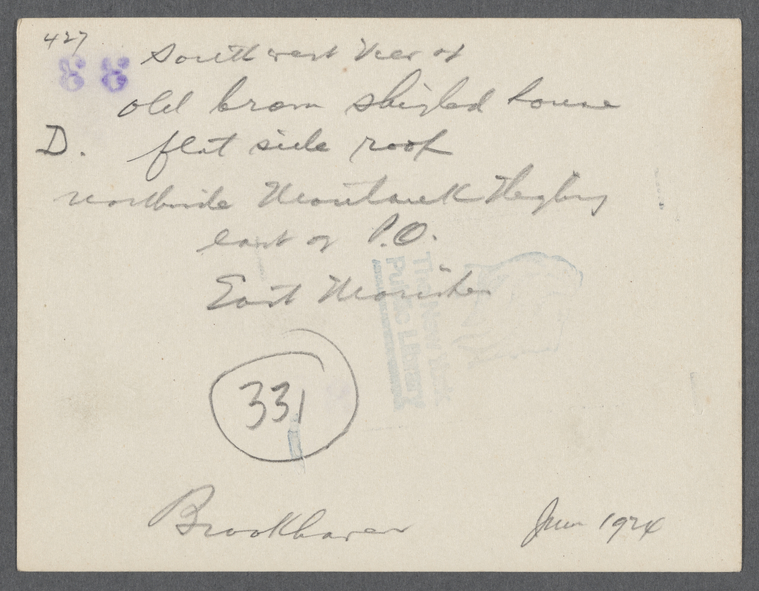 427
88 Southwest view of
old brown shigled house
D. flat side roof
northside Montauk Hegby
east of P.O.
East Moriches
The New York
Public Library
331
Brookhaven June 1924